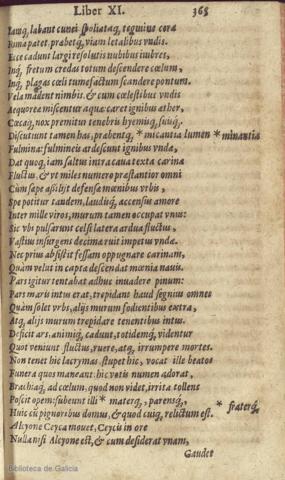 Liber XI. 368
Iamq́, labant cunei, spoliataq, tegmine cerę
Rima patet, prębetq́, viam letalibus vndis.
Ecce cadunt largi resolutis nubibus imbres,
Inq́, fretum credas totum descendere cœlum,
Inq́, plagas cœli tumefactum scandere pontum.
Vela madent nimbis, & cum cœlestibus vndis
Aequoreæ miscentur aquæ: caret ignibus æther,
Cæcaq́, nox premitur tenebris hyemisq́, suisq́.
Discutiunt tamen has, prabentq́, * micantia lumen * minantia
Fulmina: fulmineis ardescunt ignibus vnda,
Dat quoq́, iam saltus intra caua texta carinæ
Fluctus, & vt miles numero præstantior omni
Cùm sæpe assilijt defensæ mœnibus vrbis,
Spe potitur tandem, laudisq́, accensus amore
Inter mille viros, murum tamen occupat vnus:
Sic vbi pulsarunt celsi latera ardua fluctus,
Vastius insurgens decimæ ruit impetus vndæ.
Nec prius absistit fessam oppugnare carinam,
Quàm velut in captæ descendat mœnia nauis.
Pars igitur tentabat adhuc inuadere pinum:
Pars maris intus erat, trepidant haud segnius omnes
Quàm solet vrbs, alijs murum fodientibus extra,
Atq́, alijs murum trepidare tenentibus intus.
Deficit ars, animiq́, cadunt, totidemq́, videntur
Quot veniunt fluctus, ruere, atq́, irrumpere mortes.
Non tenet hic lacrymas, stupet hic, vocat ille beatos
Funera quos maneant: hic vetis numen adorat,
Brachiaq́, ad cœlum, quod non videt, irrita tollens
Poscit opem: subeunt illi * materq́,, parensq́, * fraterq́,
Huic cũ pignoribus domus, & quod cuiq́, relictum est.
Alcyone Ceyca mouet, Ceycis in ore
Nulla nisi Alcyone est, & cum desiderat vnam,
Gaudet
Biblioteca de Galicia